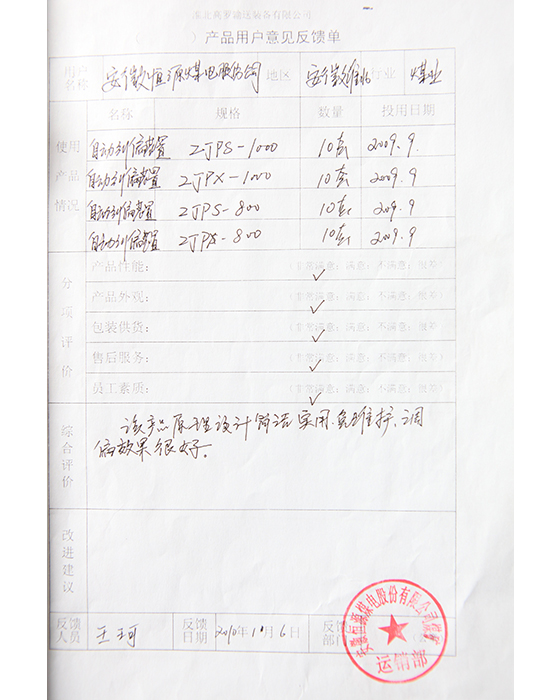 东北高罗输送装备有限公司
( ) 产品用户意见反馈单
用户名称 安徽恒源煤电股份公司 地区 安徽淮北 行业 煤业
名称 规格 数量 投用日期
使用产品情况
自动纠偏装置 ZJPS-1000 10套 2009.9.
自动纠偏装置 ZJPX-1000 10套 2009.9
自动纠偏装置 ZJPS-800 10套 2009.9
自动纠偏装置 ZJPX-800 10套 2009.9
分项评价
产品性能: (非常满意; 满意; 不满意; 很差) ✓
产品外观: (非常满意; 满意; 不满意; 很差) ✓
包装供货: (非常满意; 满意; 不满意; 很差) ✓
售后服务: (非常满意; 满意; 不满意; 很差) ✓
员工素质: (非常满意; 满意; 不满意; 很差) ✓
综合评价
该产品原理设计简洁实用.免维护、调
偏效果很好.
改进建议
反馈人员 王珂 反馈日期 2010年 月6日 反馈部门
安徽恒源煤电股份有限公司
运销部